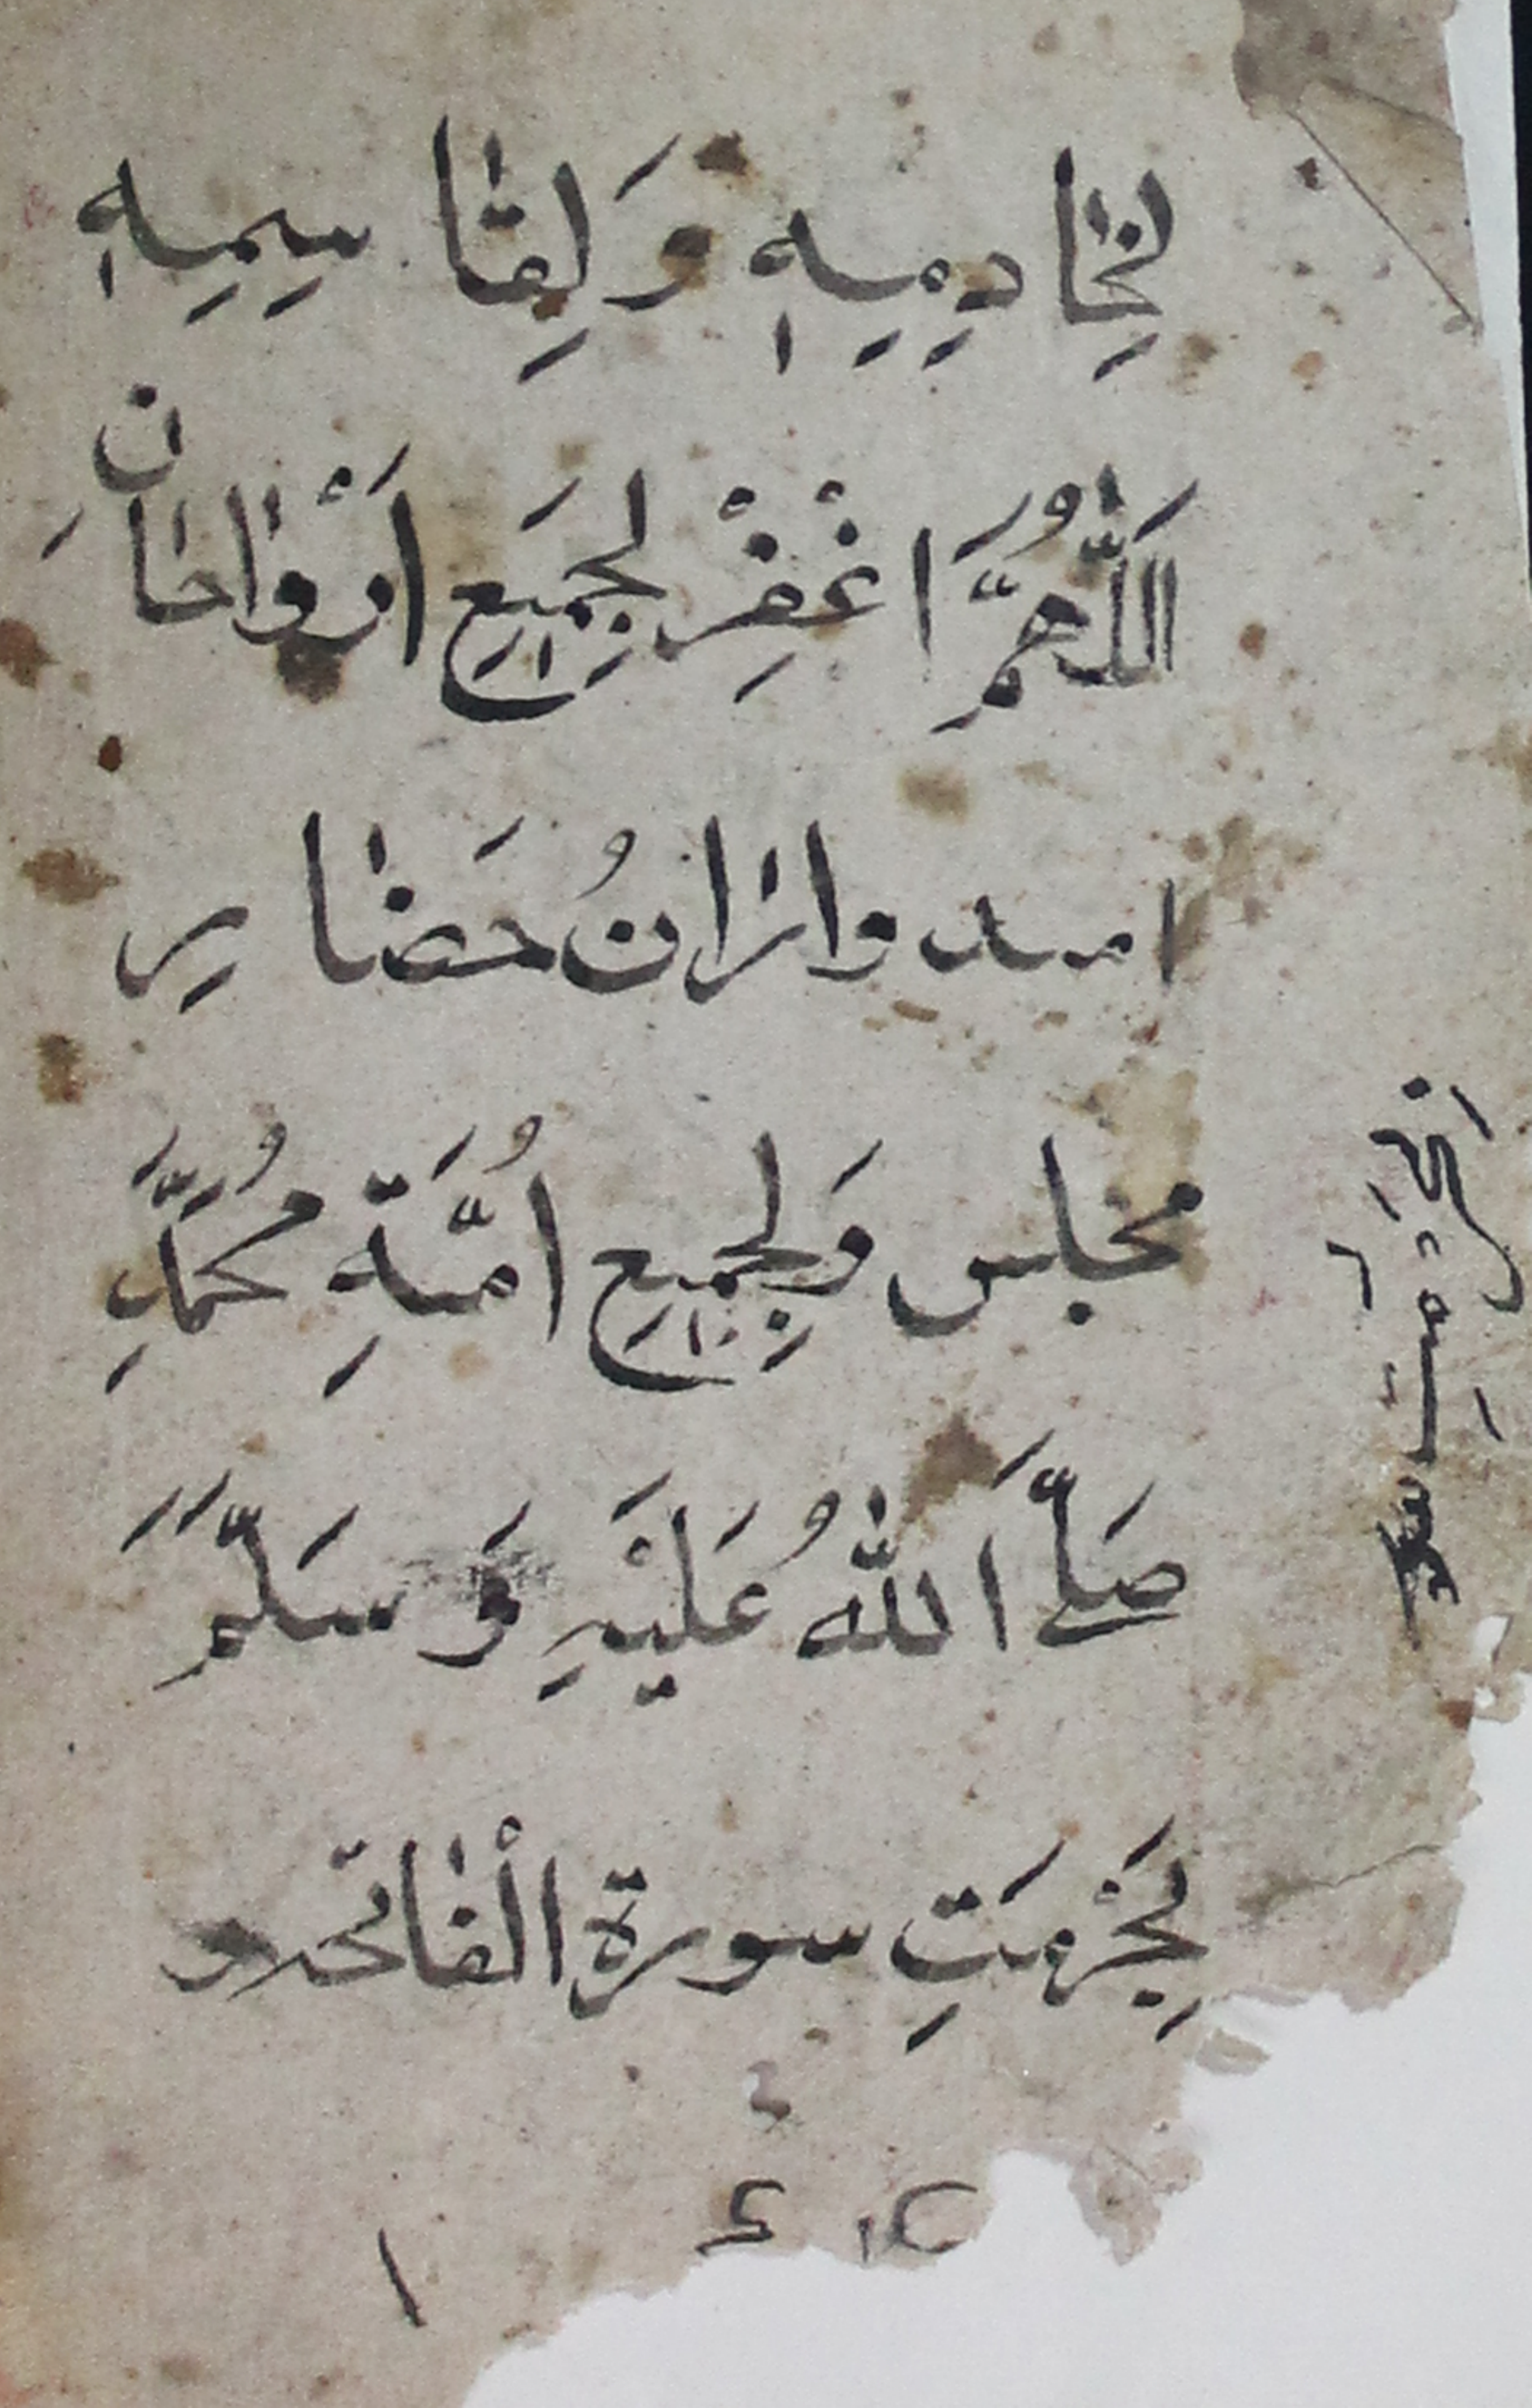 لِخٰادِمِيهٖ وَلِقٰاسِمِيهٖ
اَللّٰهُمَّ اغْفِرْ لِجَمِيعِ اَرْوٰاحٰانِ
امیدوارٰانُ حَضٰارِ
مجلس وَلِجَمِيعِ اُمَّةِ مُحَمَّدِ
صَلَّ اللّٰهُ عَلَيْهِ وَسَلَّمَ
بِحُرْمَتِ سورة الْفٰاتحه